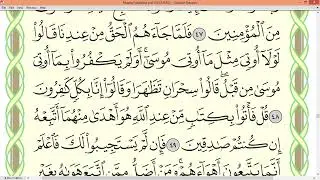 مِنَ ٱلْمُؤْمِنِينَ ٤٧ فَلَمَّا جَآءَهُمُ ٱلْحَقُّ مِنْ عِندِنَا قَالُوا۟
لَوْلَآ أُوتِىَ مِثْلَ مَآ أُوتِىَ مُوسَىٰٓ ۚ أَوَلَمْ يَكْفُرُوا۟ بِمَآ أُوتِىَ
مُوسَىٰ مِن قَبْلُ ۖ قَالُوا۟ سِحْرَانِ تَظَٰهَرَا وَقَالُوٓا۟ إِنَّا بِكُلٍّ كَٰفِرُونَ
٤٨ قُلْ فَأْتُوا۟ بِكِتَٰبٍ مِّنْ عِندِ ٱللَّهِ هُوَ أَهْدَىٰ مِنْهُمَآ أَتَّبِعْهُ
إِن كُنتُمْ صَٰدِقِينَ ٤٩ فَإِن لَّمْ يَسْتَجِيبُوا۟ لَكَ فَٱعْلَمْ
أَنَّمَا يَتَّبِعُونَ أَهْوَآءَهُمْ ۚ وَمَنْ أَضَلُّ مِمَّنِ ٱتَّبَعَ هَوَىٰهُ بِغَيْرِ